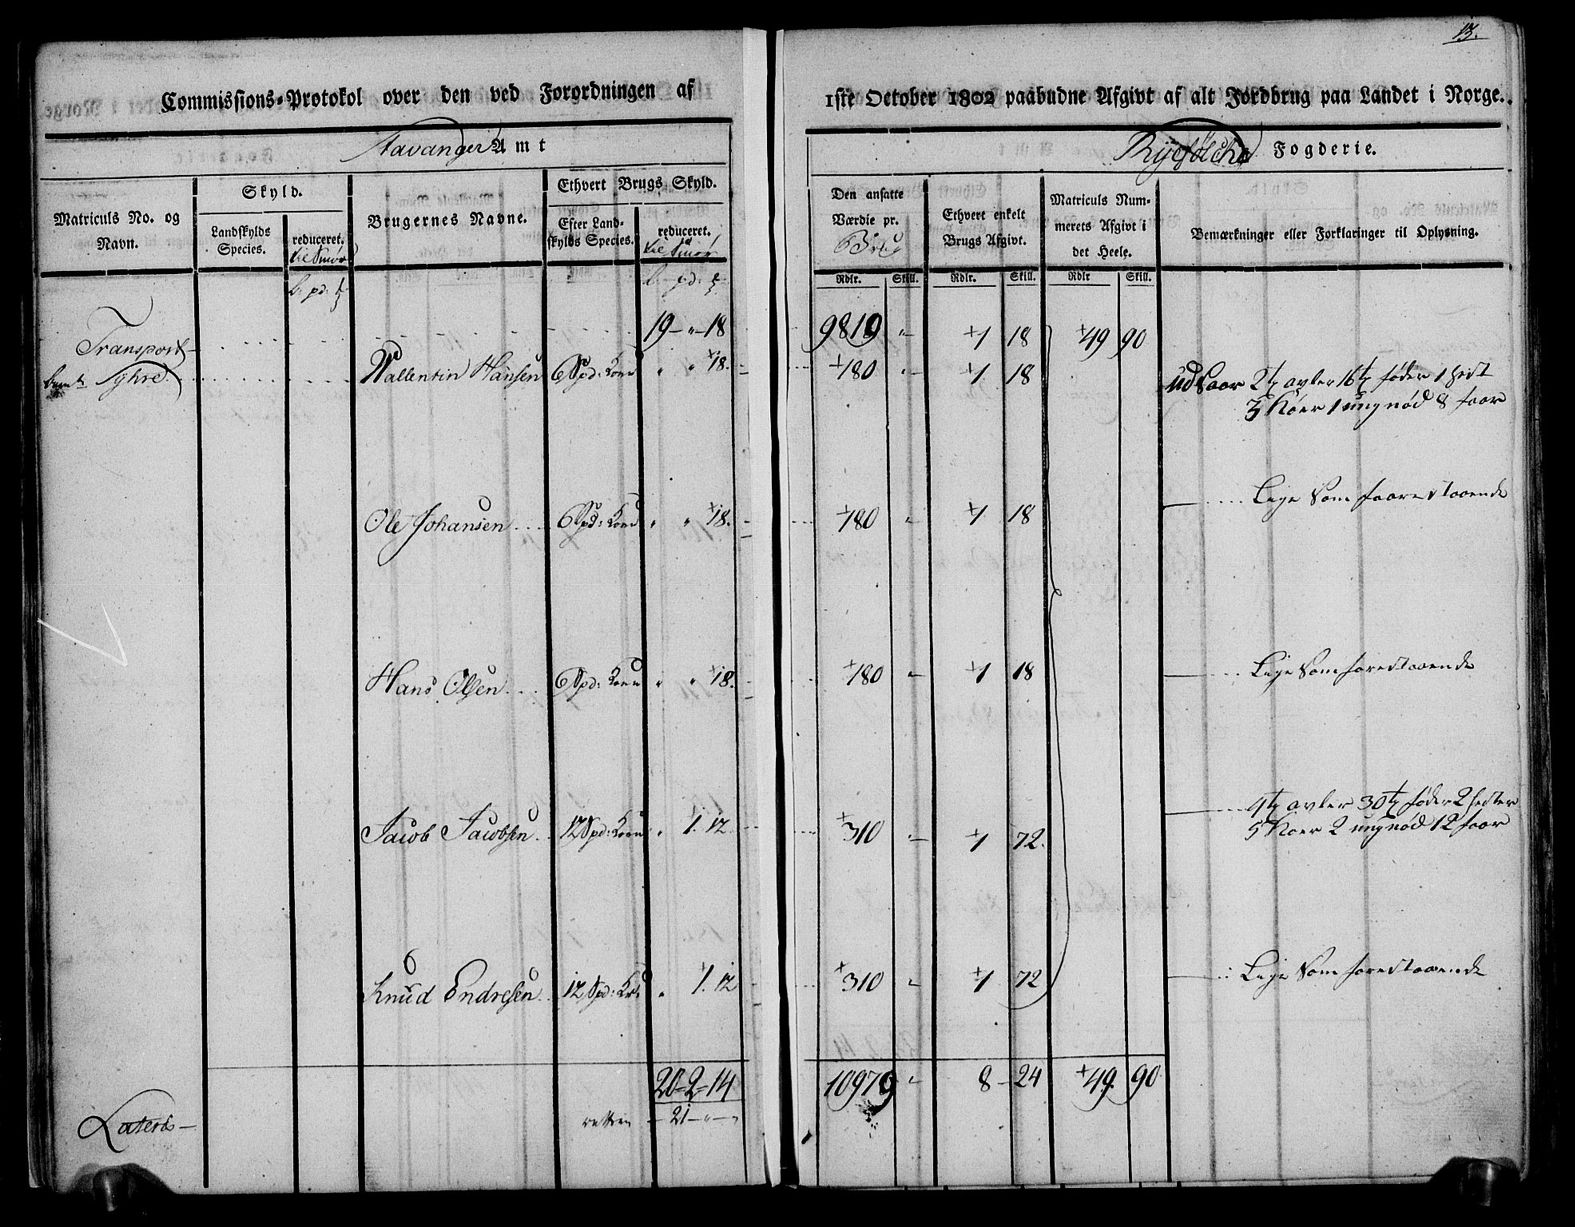 13.
Commissions-Protokol over den ved Forordningen af 1ste October 1802 paabudne Afgivt af alt Jordbrug paa Landet i Norge.
Stavanger Amt
Ryefölche Fogderie.
Matriculs No. og Navn.
Skyld.
Landskylds Species.
reduceret. til Smör
Brugernes Navne.
Ethvert Brugs Skyld.
Efter Landskylds Species.
reduceret. til Smör
Den ansatte Værdie pr. Brug
Ethvert enkelt Brugs Afgivt.
Matriculs Nummerets Afgivt i det Heele.
Bemærkninger eller Forklaringer til Oplysning.
b. pd: b. pd:
Rdlr. Skill. Rdlr. Skill. Rdlr Skill.
Transport 19 - " - 18 9819 " 1 18 49 90
Tghre Wallentin Hansen 6 Spd: Korn " " 18. 180 " 1 18 Udsaar 2 t avler 16 t föder 1 Hest
3 Köer 1 ungnöd 8 faar
Ole Johansen 6 Spd: Korn " " 18. 180 " 1 18 Lige Som faarestaaende
Hans Olsen 6 Spd: Korn " " 18. 180 " 1 18 Lige Som forestaaende
Jacob Jacobsen 12 Spd: Korn " 1. 12 310 " 1 72. 4 t avler 30 t föder 2 hester
5 Koer 2 ungnöd 12 faar
Knud Endresen 12 Spd: Korn " 1. 12 310 " 1 72 Lige Som forestaaende
20 - 2 - 14 10979 " 8 - 24 49. 90
Lateris - retten - 21 - " -